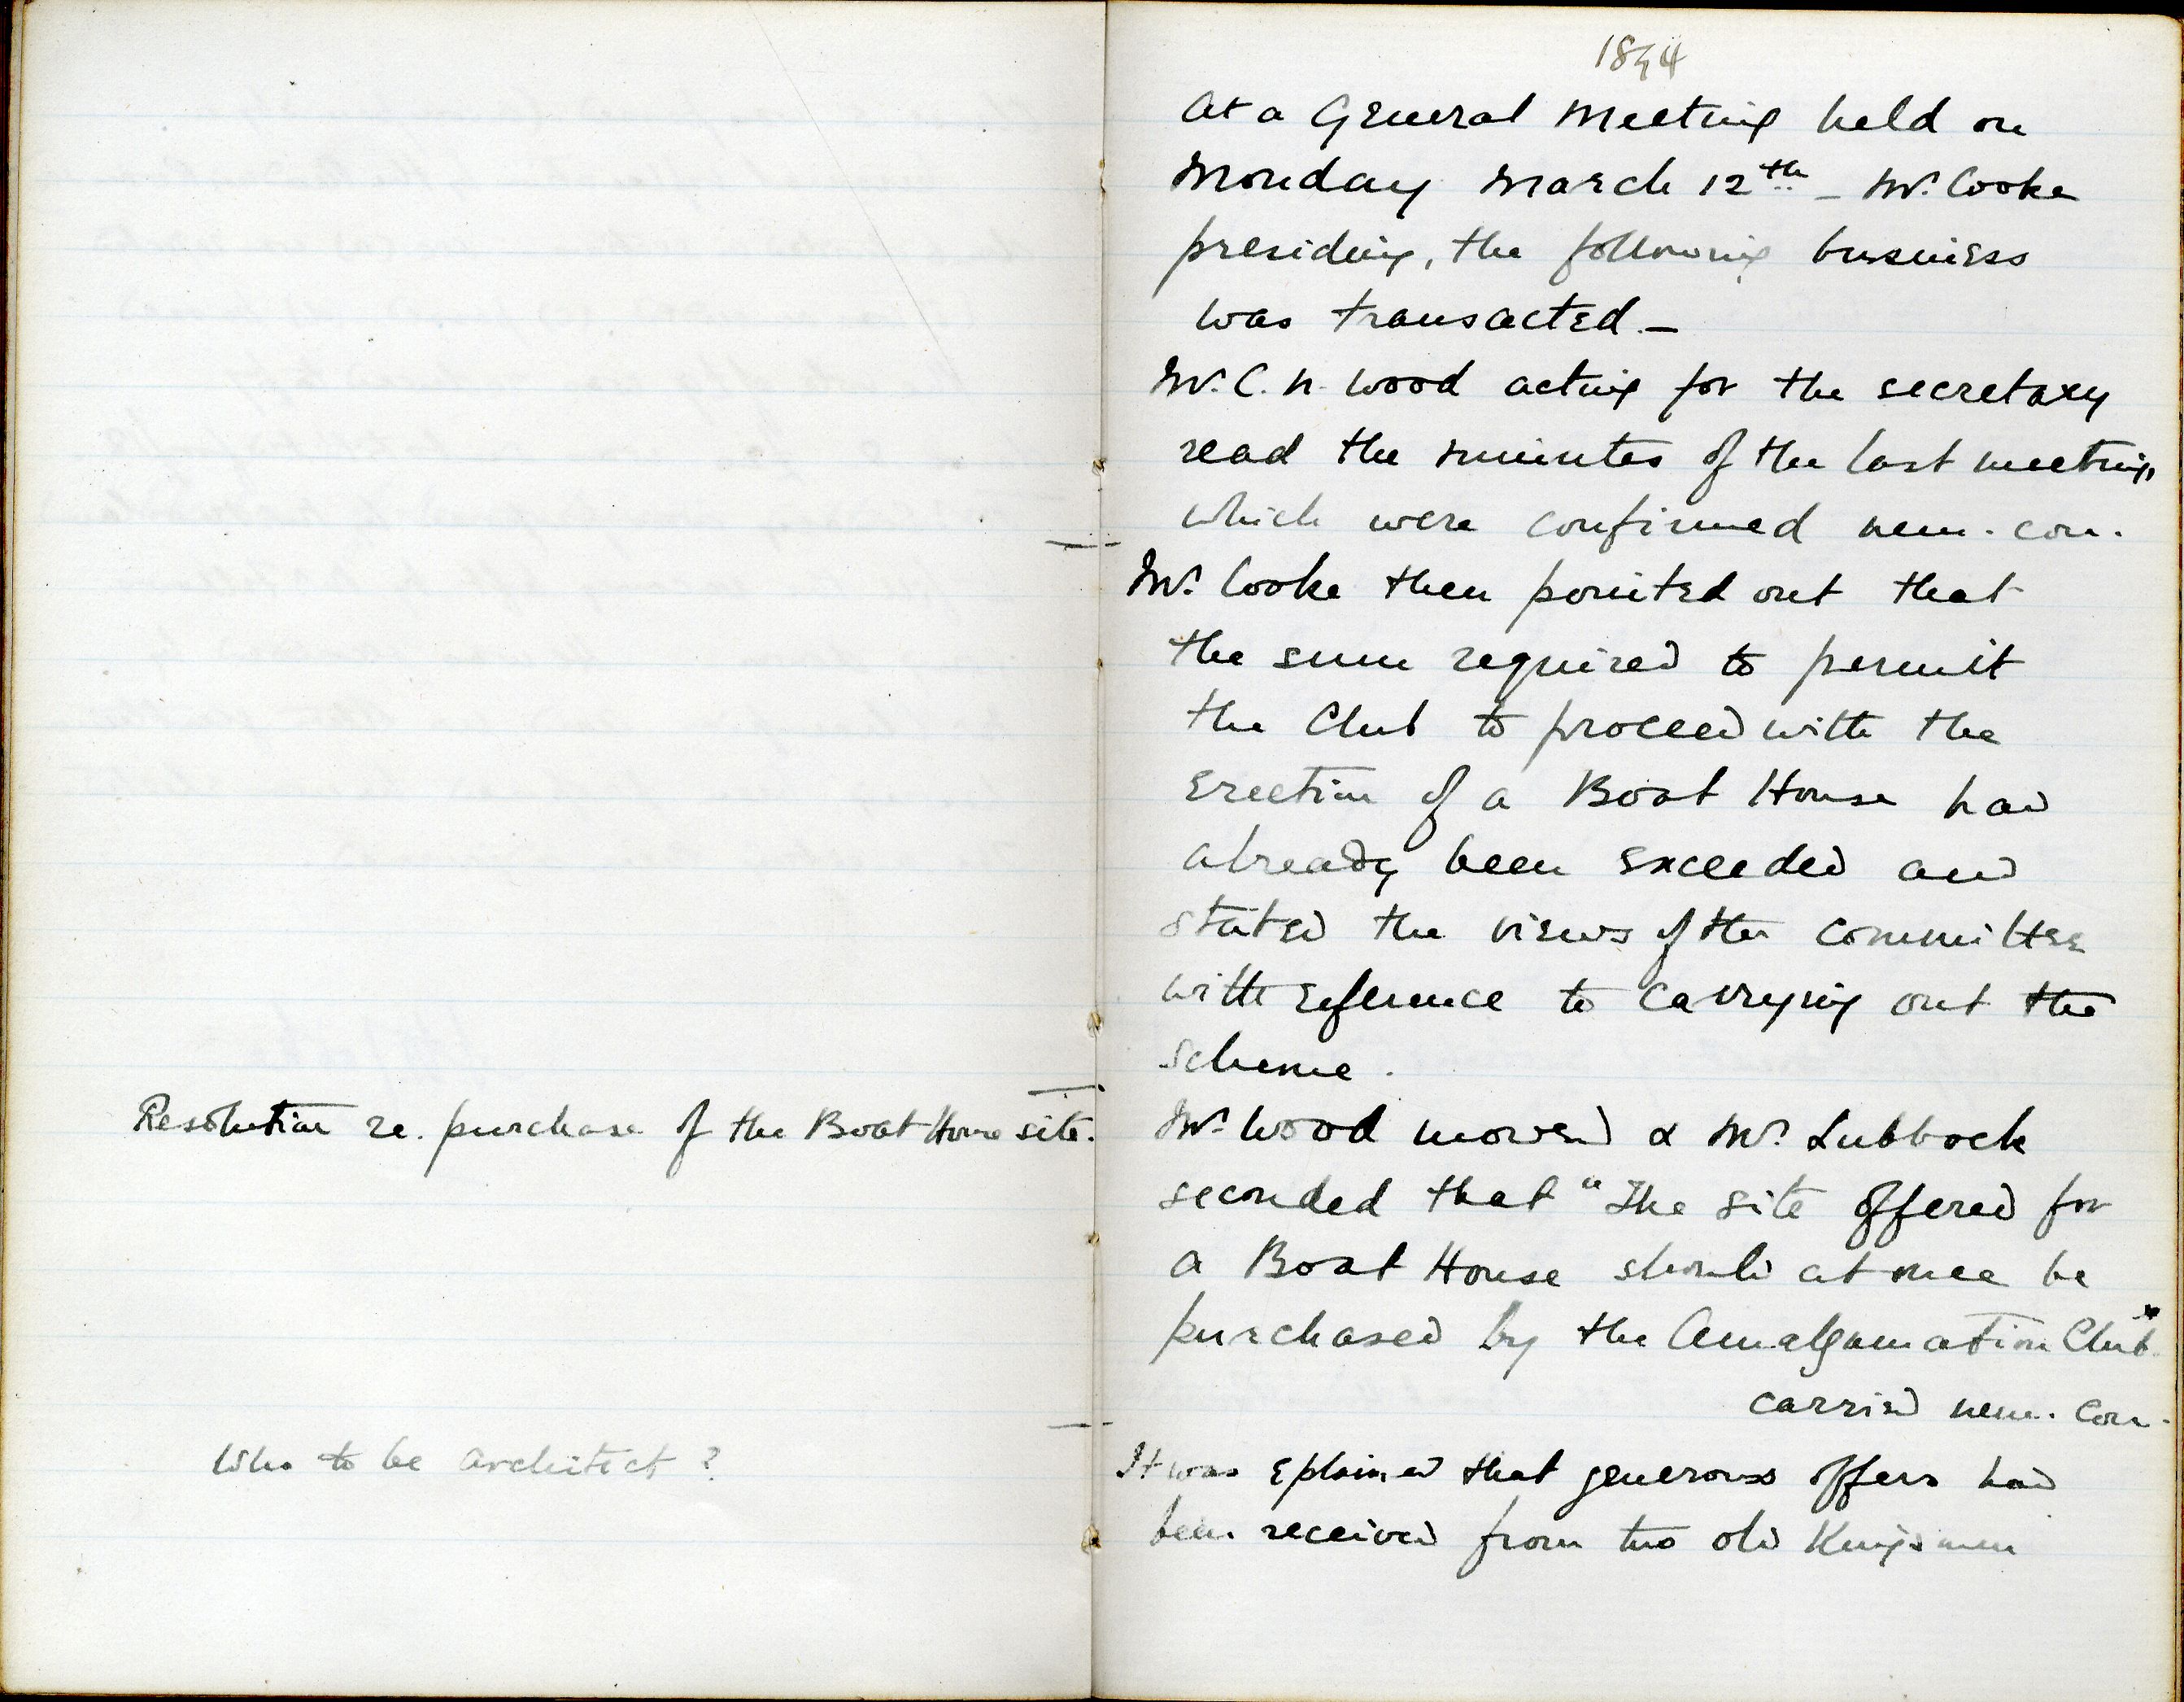 Resolution re. purchase of the Boat House site.
Who to be architect?
1894
At a General Meeting held on
Monday March 12th – Mr. Cooke
presiding, the following business
was transacted. –
Mr. C. N. Wood acting for the secretary
read the minutes of the last meeting,
which were confirmed nem. con.
Mr. Cooke then pointed out that
the sum required to permit
the Club to proceed with the
erection of a Boat House had
already been exceeded and
stated the views of the committee
with reference to carrying out the
scheme.
Mr. Wood moved & Mr. Lubbock
seconded that "The site offered for
a Boat House should at once be
purchased by the Amalgamation Club."
carried nem. con.
It was eplained that generous offers had
been received from two old Kingsmen